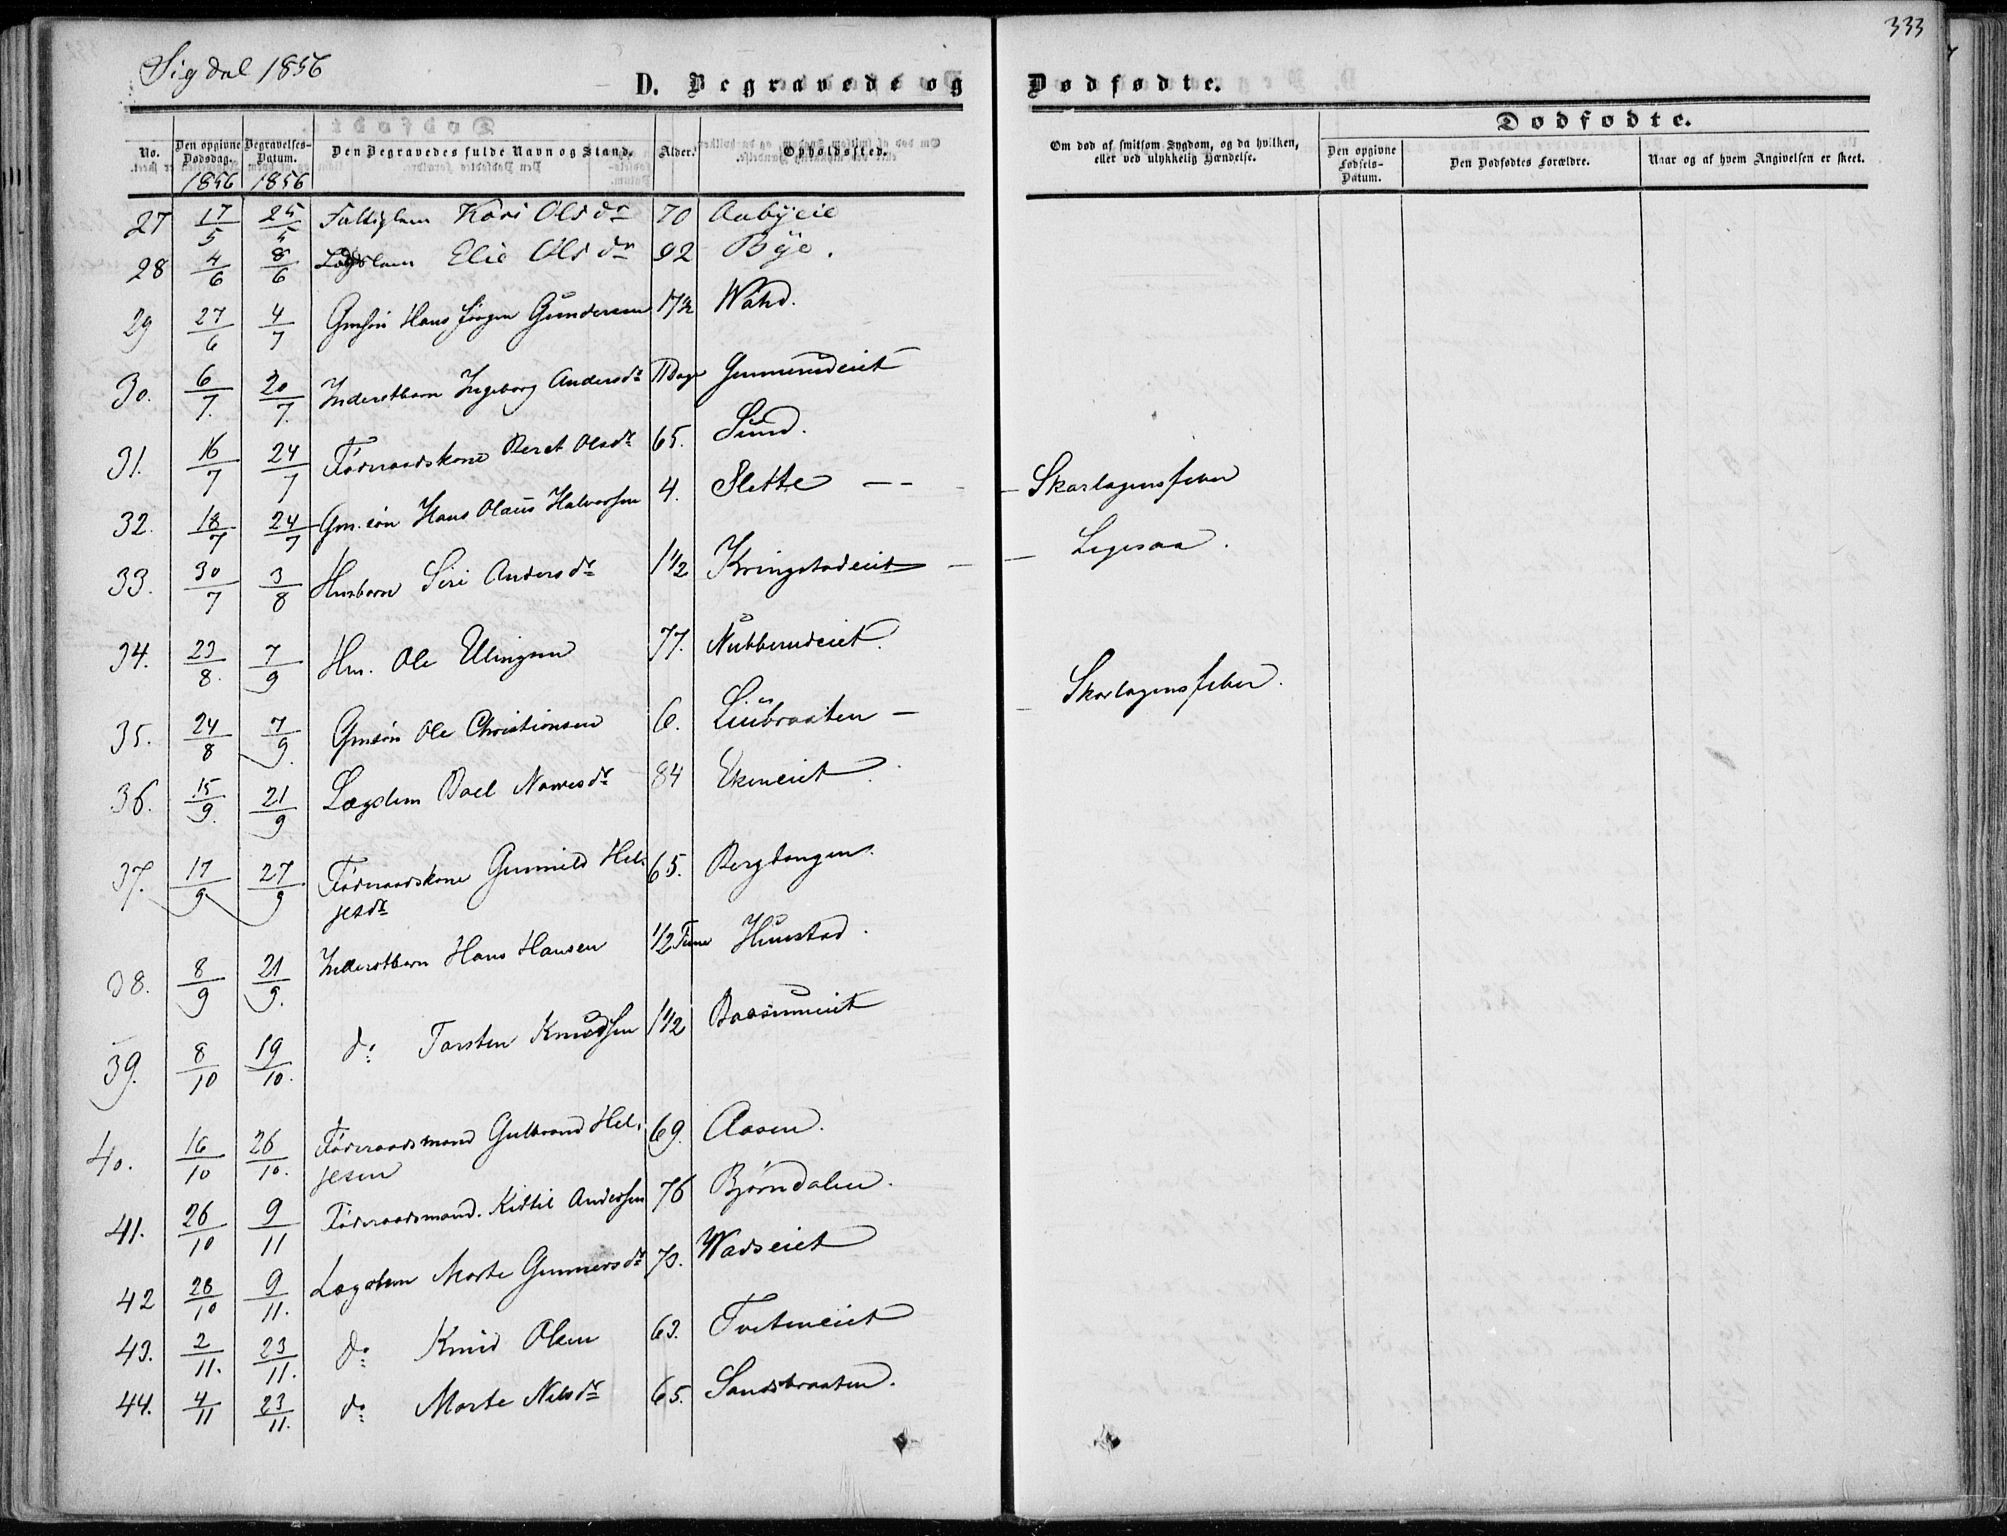 Sigdal 1856
333
D. Begravede og Dødfødte.
Dødfødte.
No.
Den opgivne Dødsdag.
Begravelses-Datum.
Den Begravedes fulde Navn og Stand.
Alder.
Opholdssted.
Om død af smitsom Sygdom, og da hvilken, eller ved ulykkelig Hændelse.
Den opgivne Fødsels-Datum.
Den Dødfødtes Forældre.
Naar og af hvem Angivelsen er skeet.
1856 1856
27 17/5 25/5 Fattiglem Kari Olsdr 70 Aabyeie
28 4/6 8/6 Lægdslem Elie Olsdr 92 Bye.
29 27/6 4/7 Gmsøn Hans Jørgen Gundersen 17 1/2
30. 6/7. 20/7. Inderstbarn Ingeborg Andersdr Dage Gunnerudeiet
31. 16/7 24/7 Føderaadskone Beret Olsdr 65. Sund.
32. 18/7 24/7 Gm.søn Hans Olaus Halvorsen 4. Slette — — — Skarlagensfeber
33. 30/7 3/8 Husbarn Siri Andersdr 1 1/2 Kringstadeiet — — Ligesaa.
34. 23/8. 7/9 Hm. Ole Ellingsen 77. Nubberudeiet.
35. 24/8 7/9. Gmsøn Ole Christiansen 6. Liubraaten — — Skarlagensfeber.
36. 15/9. 21/9 Lægdslem Boel Narvesdr 84 Ekeneiet
37. 17/9 27/9 Føderaadskone Gunnild Hel-
jesdr 65. Bergtangen.
38. 8/9 21/9. Inderstbarn Hans Hansen 1/2 Time Hunstad.
39. 8/10 19/10. do Torsten Knudsen 1 1/2 Baasumeiet
40. 16/10 26/10. Føderaadsmand Gulbrand Hel-
jesen 69. Aasen.
41. 26/10 9/11 Føderaadsmand. Kittil Andersen 76 Bjørndalen.
42 28/10 9/11. Lægdslem Marte Gunnersdr 73. Wadseiet
43. 2/11. 23/11. do Knud Olsen 63. Tveteneiet
44. 4/11 23/11. do Marte Nilsdr 65. Sandsbraaten.